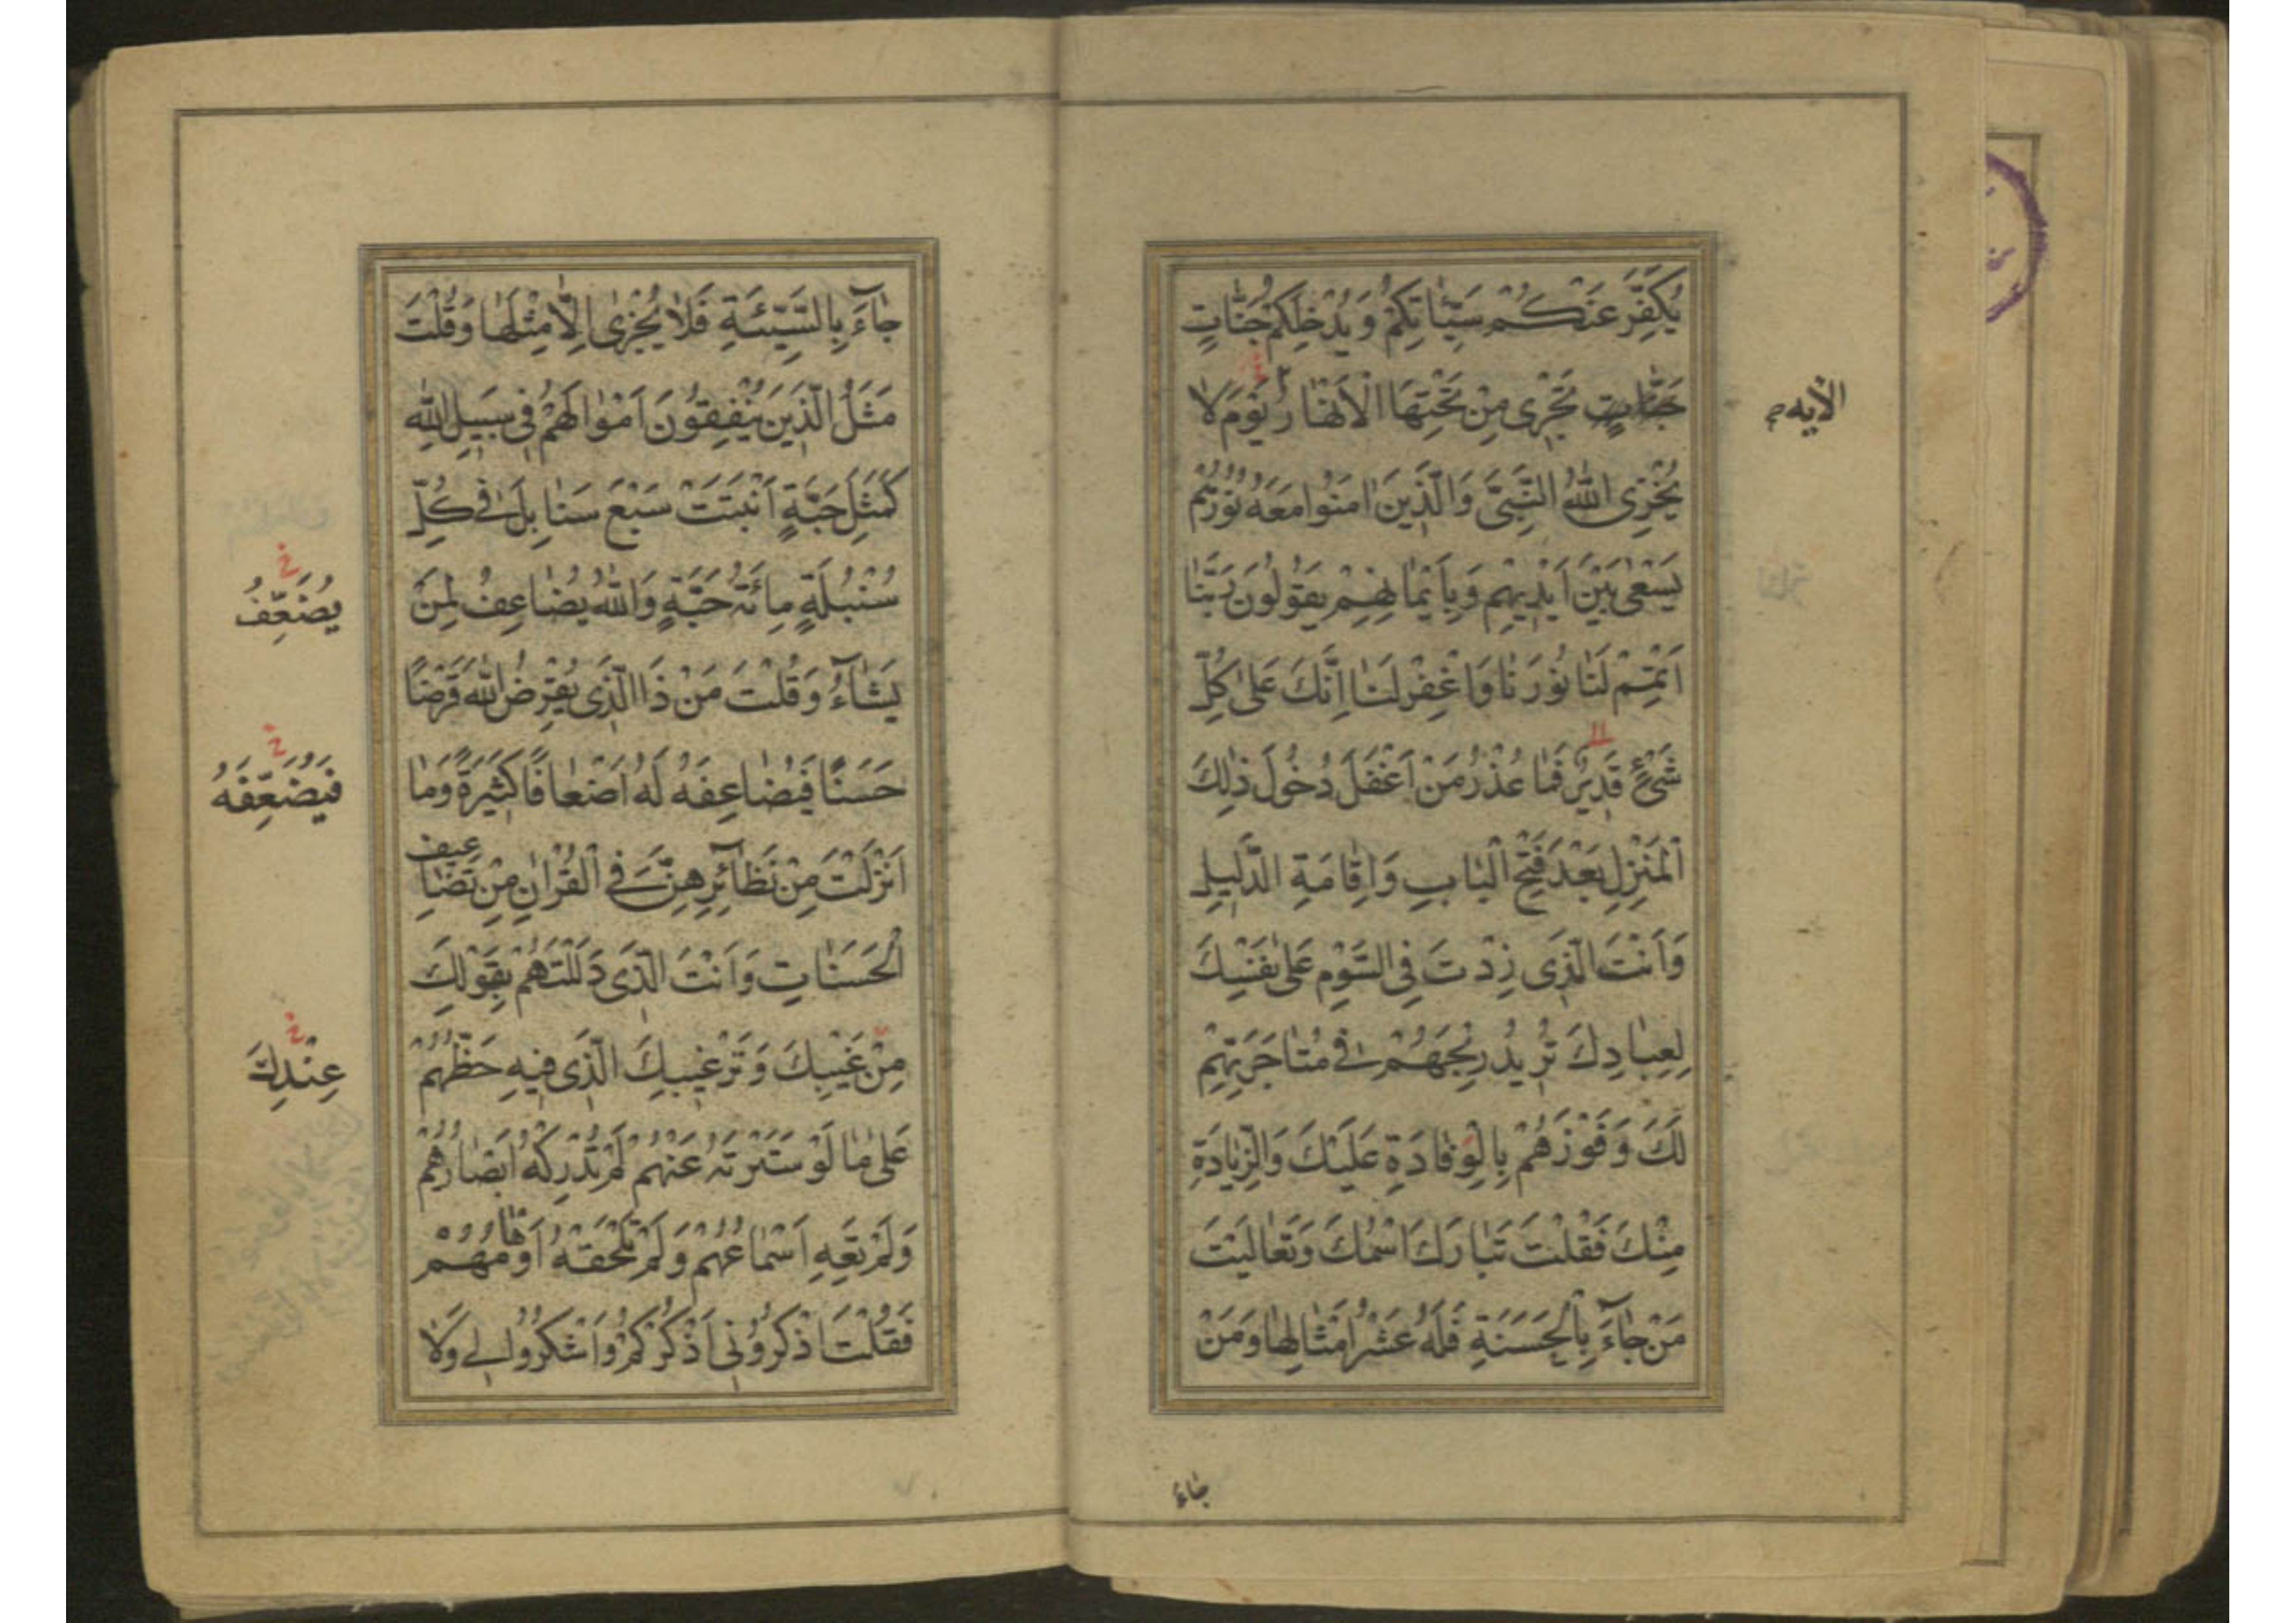 يُكَفِّرَ عَنْكُمْ سَيِّئَاتِكُمْ وَيُدْخِلَكُمْ جَنَّاتٍ
جَنَّاتٍ تَجْرِى مِنْ تَحْتِهَا الْأَنْهَارُ يَوْمَ لَا
الآيه
يُخْزِى اللهُ النَّبِىَّ وَالَّذِينَ اٰمَنُوا مَعَهُ نُورُهُمْ
يَسْعٰى بَيْنَ اَيْدِيهِمْ وَبِاَيْمَانِهِمْ يَقُولُونَ رَبَّنَا
اَتْمِمْ لَنَا نُورَنَا وَاغْفِرْ لَنَا اِنَّكَ عَلٰى كُلِّ
شَىْءٍ قَدِيرٌ فَمَا عُذْرُ مَنْ اَغْفَلَ دُخُولَ ذٰلِكَ
الْمَنْزِلِ بَعْدَ فَتْحِ الْبَابِ وَاِقَامَةِ الدَّلِيلِ
وَاَنْتَ الَّذِى زِدْتَ فِى السَّوْمِ عَلٰى نَفْسِكَ
لِعِبَادِكَ تُرِيدُ رِبْحَهُمْ فِى مُتَاجَرَتِهِمْ
لَكَ وَفَوْزَهُمْ بِالْوِفَادَةِ عَلَيْكَ وَالزِّيَادَةِ
مِنْكَ فَقُلْتَ تَبَارَكَ اسْمُكَ وَتَعَالَيْتَ
مَنْ جَاءَ بِالْحَسَنَةِ فَلَهُ عَشْرُ اَمْثَالِهَا وَمَنْ
جاء
جَاءَ بِالسَّيِّئَةِ فَلَا يُجْزٰى اِلَّا مِثْلَهَا وَقُلْتَ
مَثَلُ الَّذِينَ يُنْفِقُونَ اَمْوَالَهُمْ فِى سَبِيلِ اللهِ
كَمَثَلِ حَبَّةٍ اَنْبَتَتْ سَبْعَ سَنَابِلَ فِى كُلِّ
سُنْبُلَةٍ مِائَةُ حَبَّةٍ وَاللهُ يُضَاعِفُ لِمَنْ
خ
يُضَعِّفُ
يَشَاءُ وَقُلْتَ مَنْ ذَا الَّذِى يُقْرِضُ اللهَ قَرْضًا
حَسَنًا فَيُضَاعِفَهُ لَهُ اَضْعَافًا كَثِيرَةً وَمَا
خ
فَيُضَعِّفَهُ
اَنْزَلْتَ مِنْ نَظَائِرِهِنَّ فِى الْقُرْاٰنِ مِنْ تَضَاعِيفِ
الْحَسَنَاتِ وَاَنْتَ الَّذِى دَلَلْتَهُمْ بِقَوْلِكَ
مِنْ غَيْبِكَ وَتَرْغِيبِكَ الَّذِى فِيهِ حَظُّهُمْ
خ
عِنْدِكَ
عَلٰى مَا لَوْ سَتَرْتَهُ عَنْهُمْ لَمْ تُدْرِكْهُ اَبْصَارُهُمْ
وَلَمْ تَعِهِ اَسْمَاعُهُمْ وَلَمْ تَلْحَقْهُ اَوْهَامُهُمْ
فَقُلْتَ اذْكُرُونِى اَذْكُرْكُمْ وَاشْكُرُوا لِى وَلَا